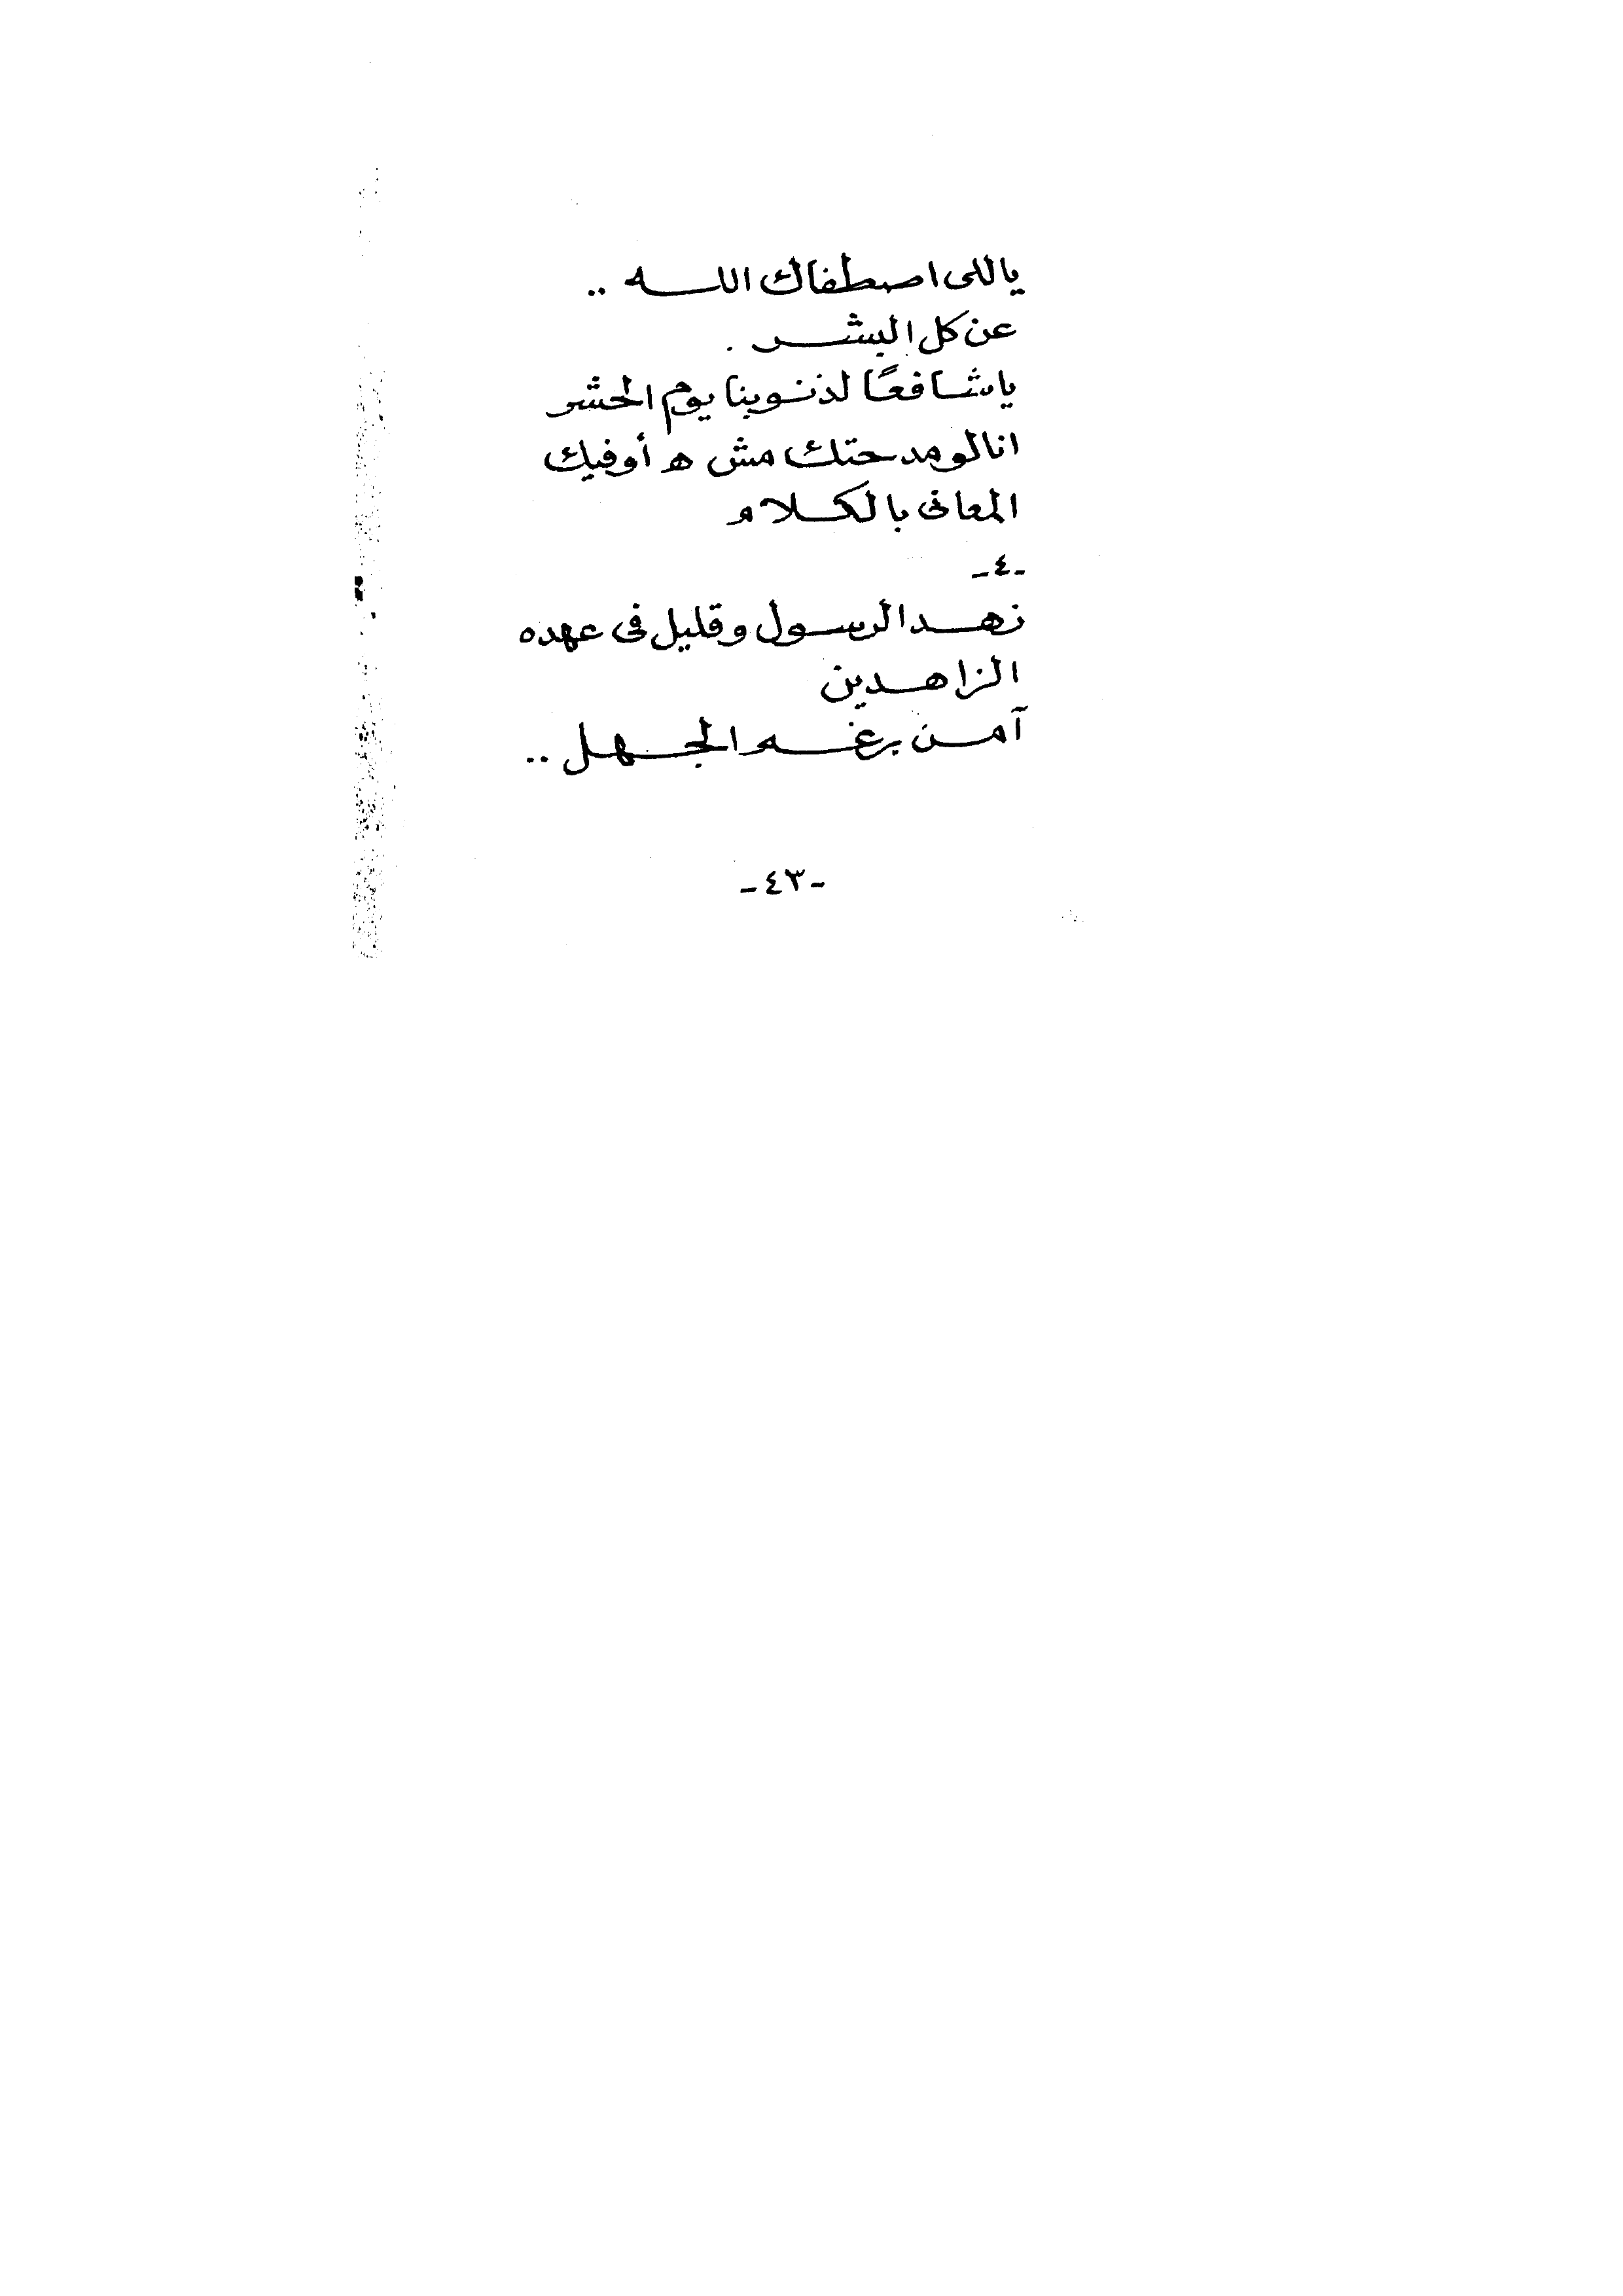 ياللى اصطفاك اللـــه ..
عن كل البشــــر .
ياشــافعًا لذنــوبنا يوم الحشر
انا لو مدحتك مش ه أوفيك
المعانى بالكــلام
-٤-
زهــد الرســول وقليل فى عهده
الزاهــدين
آمــن برغـــم الجـــهــل ..
-٤٣-